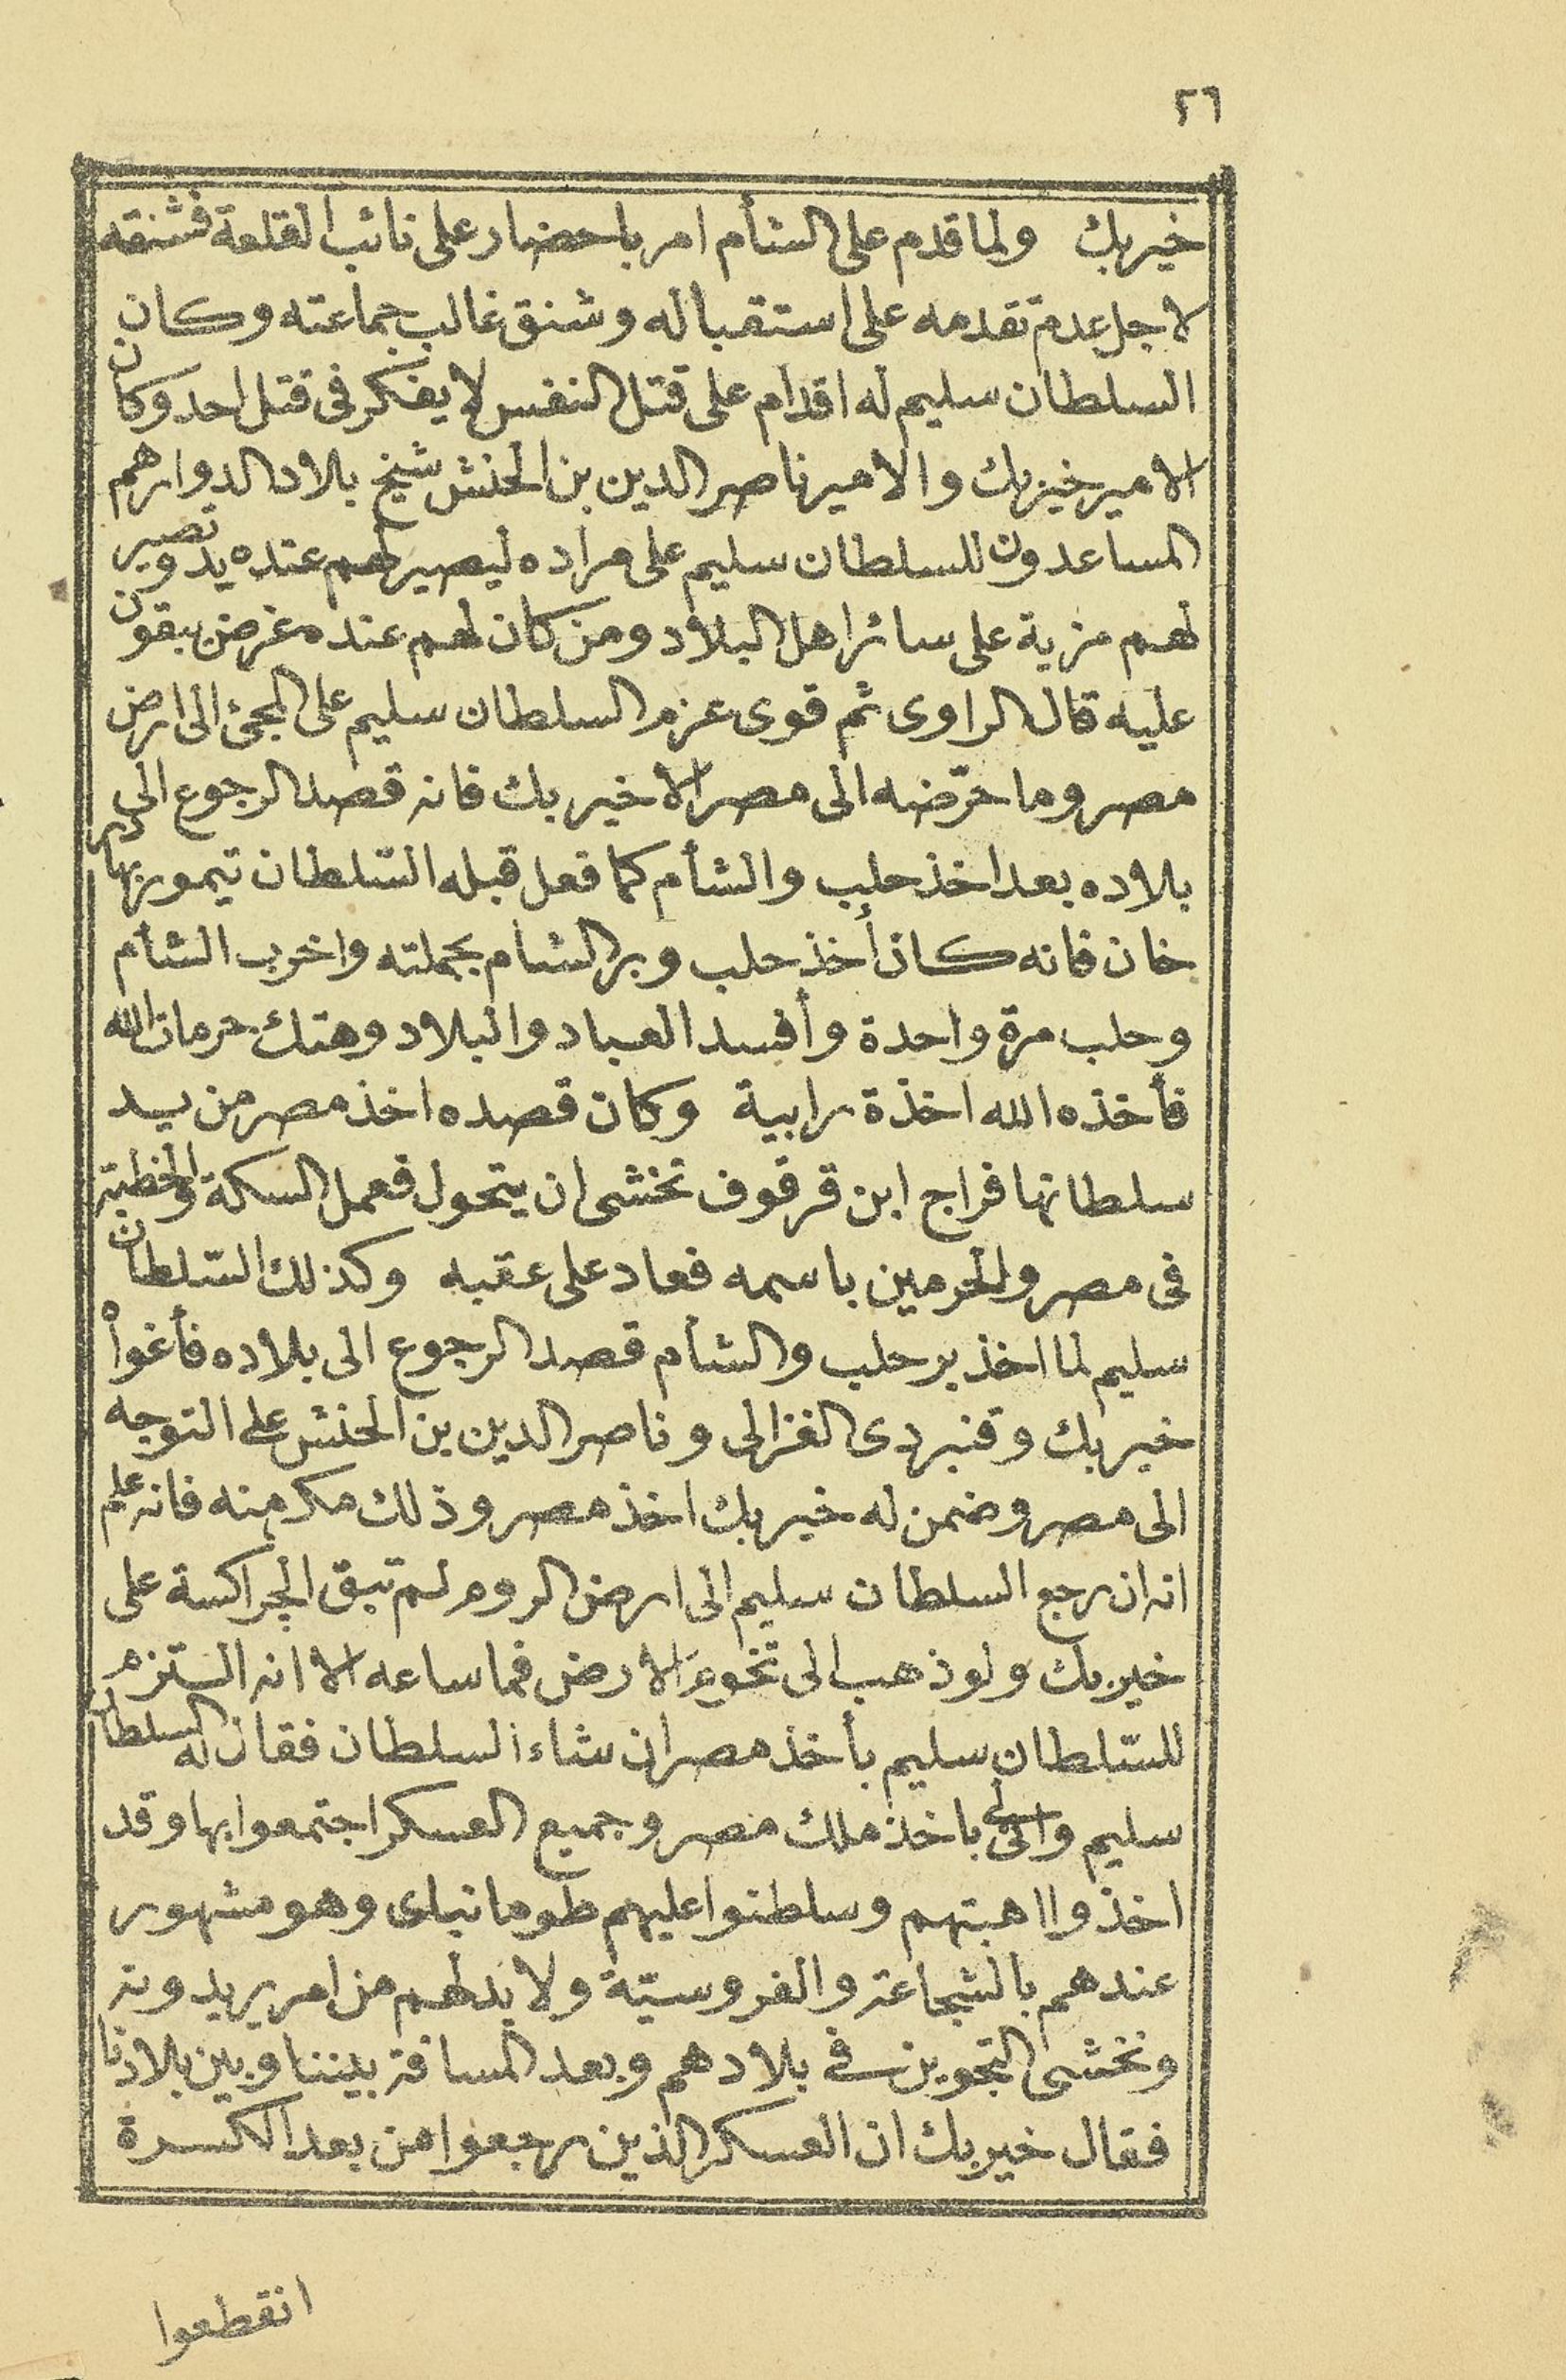 ٢٦
خيربك ولما قدم على الشأم امر باحضار على نائب القلعة فشنقه
لاجل عدم تقدمه على استقباله وشنق غالب جماعته وكان
السلطان سليم له اقدام على قتل النفس لا يفكر فى قتل احد وكان
الامير خيربك والامير ناصر الدين بن الحنش شيخ بلاد الدوار هم
المساعدون للسلطان سليم على مراده ليصير لهم عنده يد وتصير
لهم مزية على سائر اهل البلاد ومن كان لهم عنده غرض يبقون
عليه قال الراوى ثم قوى عزم السلطان سليم على المجئ الى ارض
مصر وما حرّضه الى مصر الا خيربك فانه قصد الرجوع الى
بلاده بعد اخذ حلب والشأم كما فعل قبله السّلطان تيمور بهادر
خان فانه كان أخذ حلب وبر الشام بجملته واخرب الشأم
وحلب مرة واحدة وأفسد العباد والبلاد وهتك حرمات الله
فأخذه الله اخذة رابية وكان قصده اخذ مصر من يد
سلطانها فراج ابن قرقوف تخشى ان يتحول فعمل السكة والخطبة
فى مصر والحرمين باسمه فعاد على عقبه وكذلك السّلطان
سليم لما اخذ بر حلب والشأم قصد الرجوع الى بلاده فأغواْ
خيربك وقنبردى الغزالى وناصر الدين بن الحنش على التوجه
الى مصر وضمن له خيربك اخذ مصر وذلك مكر منه فانه علم
انه ان رجع السلطان سليم الى ارض الروم لم تبق الجراكسة على
خيربك ولو ذهب الى تخوم الارض فما ساعه الا انه التزم
للسّلطان سليم بأخذ مصر ان شاء السلطان فقال له السلطان
سليم وانى لى باخذ ملك مصر وجميع العسكر اجتمعوا بها وقد
اخذوا اهبتهم وسلطنوا عليهم طومانباى وهو مشهور
عندهم بالشجاعة والفروسيّة ولا بد لهم من امر يريدونه
ونخشى التجوين فى بلادهم وبعد المسافة بيننا وبين بلادنا
فقال خيربك ان العسكر الذين رجعوا من بعد الكسرة
انقطعوا